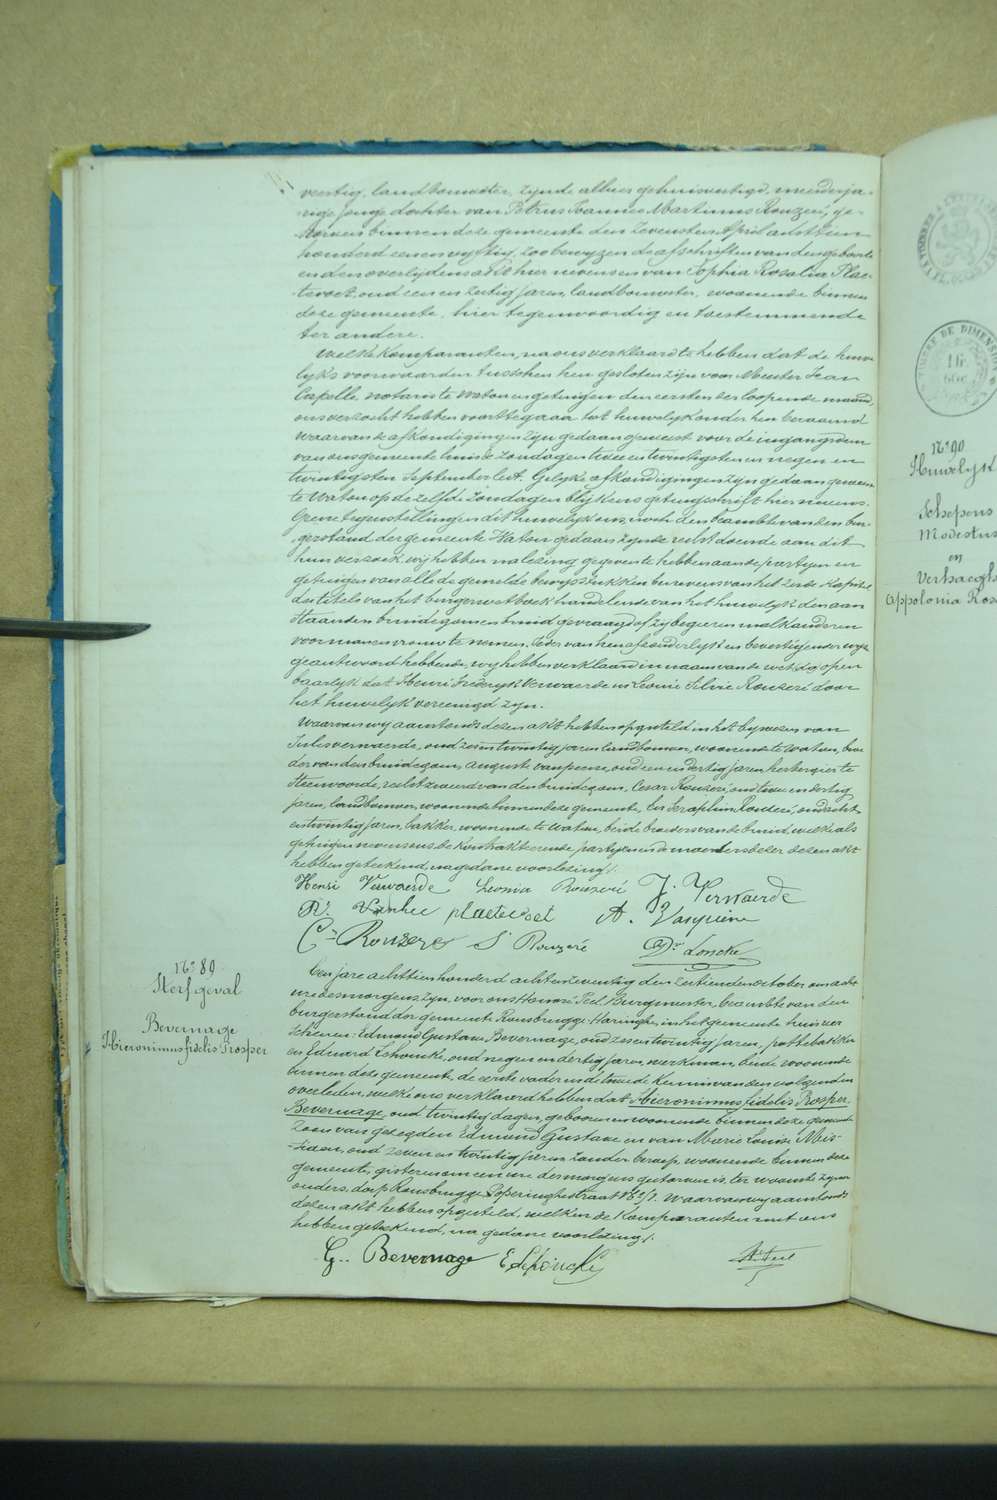 veertig, landbouwster, zynde alhier gehuisvestigd, meerderja-
rige jonge dochter van Petrus Joannes Martinus Rouzeré, ge-
storven binnen deze gemeente den zevensten April achttien
honderd een en vyftig, zoo bewyzen de afschriften van den geboorte
en den overlydensakt hier nevens en van Sophia Rosalia Plae-
tevoet, oud een en zestig jaren, landbouwster, woonende binnen
deze gemeente, hier tegenwoordig en toestemmende
ter andere.
Welke komparanten, na ons verklaard te hebben dat de huwe-
lyks voorwaarden tusschen hen gesloten zyn voor Meester Jean
Capelle, notaris te Watou en getuigen den eersten der loopende maand,
ons verzocht hebben voort te gaan tot huwelyk onder hen beraamd
waarvan de afkondigingen zyn gedaan geweest voor de ingangdeur
van ons gemeente huis de zondagen twee en twintigsten en negen en
twintigsten September lest. Gelyke afkondigingen zyn gedaan geweest
te Watou op dezelfde zondagen blykens getuigschrift hier nevens.
Geene tegenstelling en dit huwelyk ons, noch den beambte van den bur-
gerstand der gemeente Watou gedaan zynde recht doende aan dit
hun verzoek, wy hebben na lezing gegeven te hebben aan de partyen en
getuigen van alle de gemelde bewysstukken benevens van het zesde kapittel
des titels van het burgerwetboek handelende van het huwelyk den aan-
staanden bruidegom en bruid gevraagd of zy begeeren malkanderen
voor man en vrouw te nemen. Ieder van hen afzonderlyk en bevestigender wyze
geantwoord hebbende, wy hebben verklaard in naam van de wet dig open
baarlyk dat Henri Frederyk Verwaerde en Leonie Silvie Rouzeré door
het huwelyk vereenigd zyn.
Waarvan wy aanstonds dezen akt hebben opgesteld in het bywezen van
Jules Verwaerde, oud zes en twintig jaren landbouwer, woonende te Watou, broe-
der van den bruidegom, Auguste Vanpeene, oud een en dertig jaren, herbergier te
Steenvoorde, rechtzweerd van den bruidegom, Cesar Rouzere, oud twee en dertig
jaren, landbouwer, woonende binnen deze gemeente, en Seraphin Rouzeré, oud acht
en twintig jaren, bakker, woonende te Watou, beide broeders van de bruid, welke als
getuigen nevens ons, de kontrakteerende partyen en de moeders dezer dezen akt
hebben geteekend, na gedane voorlezing /.
Henri Verwaerde Leonia Rouzeré J. Verwaerde
R. Vanhee plaetevoet A. Vanpeene
C. Rouzere S Rouzeré D. Loncke
N° 89
Sterfgeval
Bevernage
Hieronimus fidelis Prosper
Een jare achttien honderd acht en zeventig den zestienden October om acht
ure des morgens zyn, voor ons Honoré Teel Burgmeester, beambte van den
burgerstand der gemeente Rousbrugge Haringhe, in het gemeente huis ver
schenen: Edmond Gustave Bevernage, oud zes en twintig jaren, pastebakker
en Eduard Lehoucke, oud negen en dertig jaren, werkman, beide woonende
binnen deze gemeente, de eerste vader en de tweede kennis van den volgenden
overleden, welke ons verklaard hebben dat Hieronimus fidelis Prosper
Bevernage, oud twintig dagen, geboren en woonende binnen deze gemeente
zoon van gezegden Edmond Gustave en van Marie Louise Mis-
tiaen, oud zeven en twintig jaren zonder beroep, woonende binnen deze
gemeente, gisteren om een ure des morgens gestorven is, ter woonste zyner
ouders, dorp Rousbrugge Poperinghestraat N° 2/1. Waarvan wy aanstonds
dezen akt hebben opgesteld, welken de komparanten met ons
hebben geteekend, na gedane voorlezing /.
G. Bevernage E Lehoucke H. Teel
N° 90
Huwelyk
Schepens
Modestus
en
Verhaeghe
Appolonia Rosa